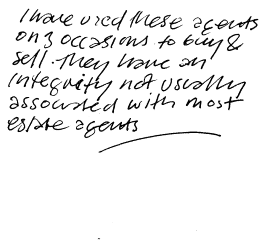 I have used these agents
on 3 occasions to buy &
sell. They have an
integrity not usually
associated with most
estate agents